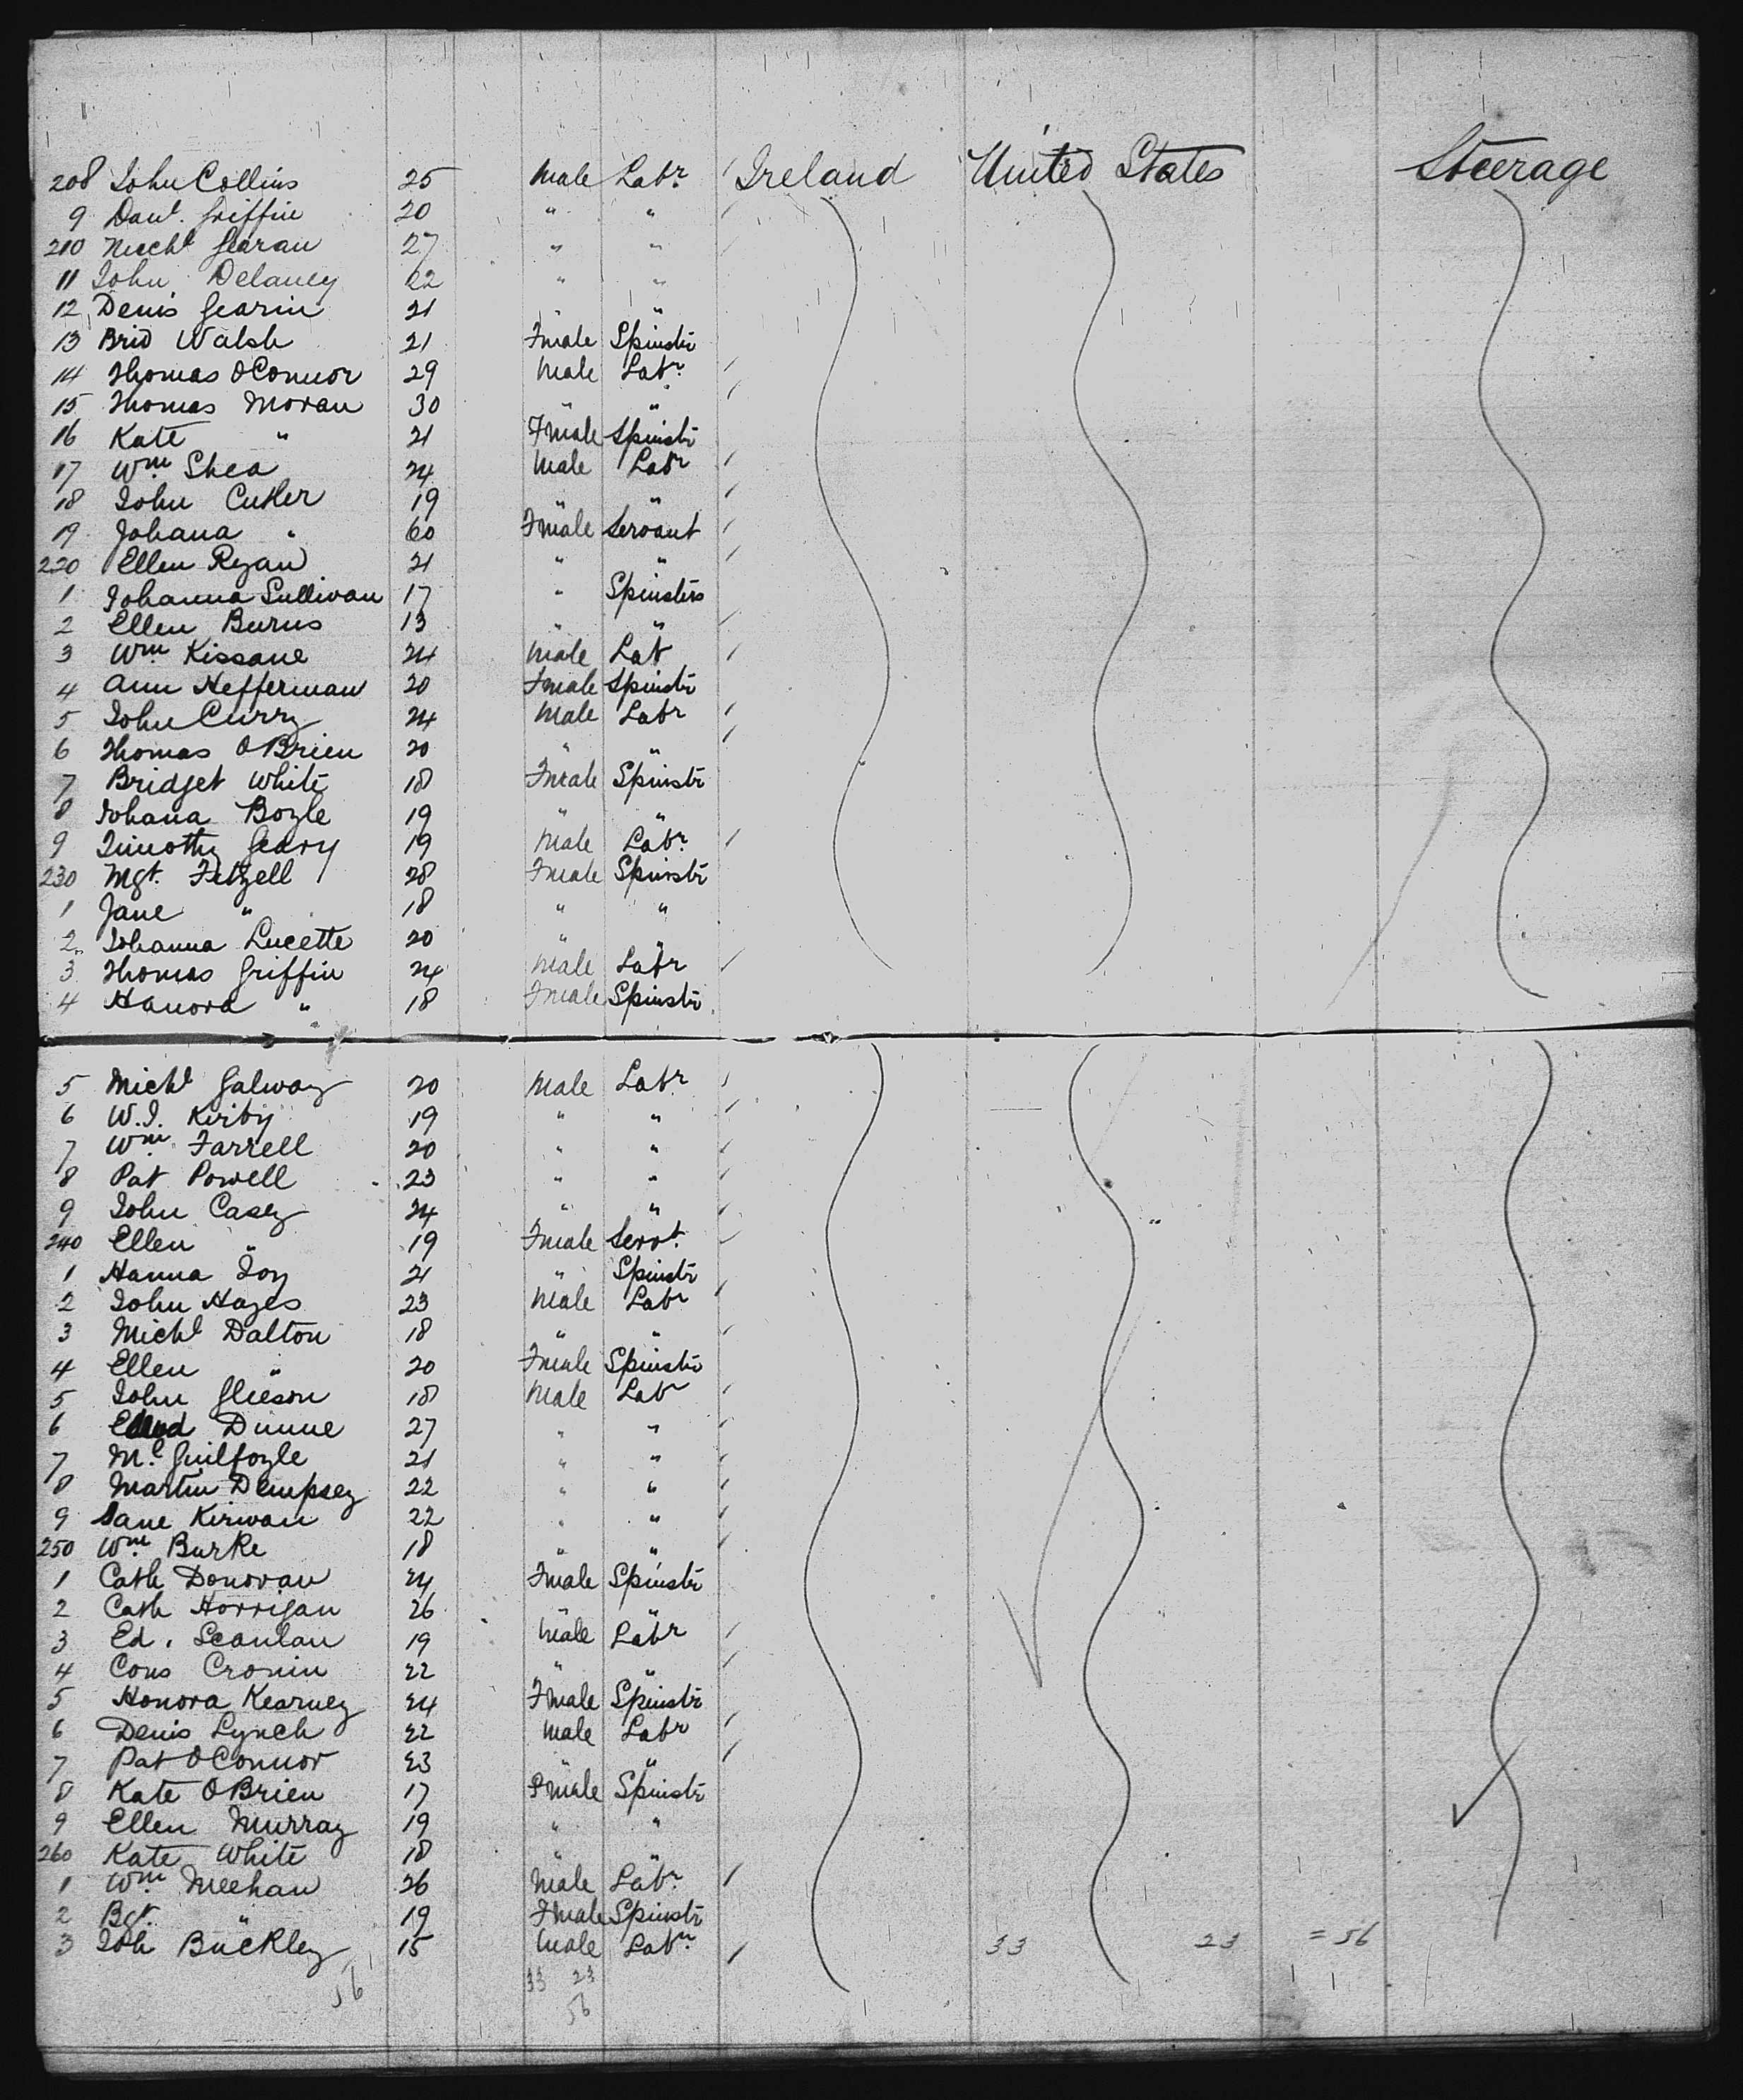 208 John Collins 25 Male Labr Ireland United States Steerage
9 Danl. Griffin 20 " "
210 Michl Gearan 27 " "
11 John Delaney 22 " "
12 Denis Gearin 21 " "
13 Brid Walsh 21 Fmale Spinstr
14 Thomas OConnor 29 Male Labr
15 Thomas Moran 30 " "
16 Kate " 21 Fmale Spinstr
17 Wm Shea 24 Male Labr
18 John Cutler 19 " "
19 Johana " 60 Fmale Servant
220 Ellen Ryan 21 " "
1 Johanna Sullivan 17 " Spinsters
2 Ellen Burns 13 " "
3 Wm Kissane 24 Male Lab
4 Ann Hefferman 20 Fmale Spinstr
5 John Curry 24 Male Labr
6 Thomas OBrien 20 " "
7 Bridget White 18 Fmale Spinstr
8 Johana Boyle 19 " "
9 Timothy Geary 19 Male Labr
230 Mgt. Fitzell 28 Fmale Spinstr
1 Jane " 18 " "
2 Johanna Lucette 20 " "
3 Thomas Griffin 24 Male Labr
4 Hanora " 18 Fmale Spinstr
5 Michl Galway 20 Male Labr
6 W.J. Kirby 19 " "
7 Wm Farrell 20 " "
8 Pat Powell 23 " "
9 John Casey 24 " "
240 Ellen " 19 Fmale Servt.
1 Hanna Joy 21 " Spinstr
2 John Hayes 23 Male Labr
3 Michl Dalton 18 " "
4 Ellen " 20 Fmale Spinstr
5 John Gleeson 18 Male Labr
6 Dunne 27 " "
7 Ml Guilfoyle 21 " "
8 Martin Dempsey 22 " "
9 Kirwan 22 " "
250 Wm Burke 18 " "
1 Cath Donovan 24 Fmale Spinstr
2 Cath Horrigan 26 " "
3 Ed. Scanlan 19 Male Labr
4 Cons Cronin 22 " "
5 Honora Kearney 24 Fmale Spinstr
6 Denis Lynch 22 Male Labr
7 Pat OConnor 23 " "
8 Kate OBrien 17 Fmale Spinstr
9 Ellen Murray 19 " "
260 Kate White 18 " "
1 Wm Meehan 26 Male Labr
2 Bgt. " 19 Fmale Spinstr
3 Joh Buckley 15 Male Labr 33 23 = 56
56 33 23
56